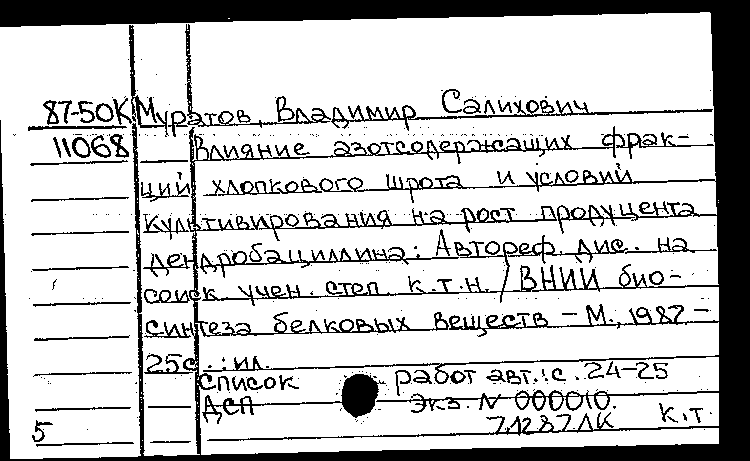 87-50К Муратов, Владимир Салихович
11068 Влияние азотсодержащих фрак-
ций хлопкового шрота и условий
культивирования на рост продуцента
дендробациллина: Автореф. дис. на
соиск. учен. степ. к.т.н. / ВНИИ био-
синтеза белковых веществ – М., 1987 –
25с.: ил.
Список работ авт.: с. 24-25
ДСП Экз. N 000010.
5 К.Т.